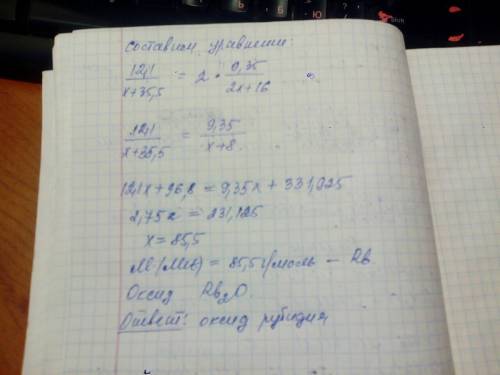 составим уравнение:
12,1/x+35,5 = 2 · 9,35/2x+16
12,1/x+35,5 = 9,35/x+8.
12,1x+96,8 = 9,35x + 331,925
2,75x = 235,125
x = 85,5
M(Me) = 85,5 г/моль – Rb.
Оксид Rb₂O.
Ответ: оксид рубидия